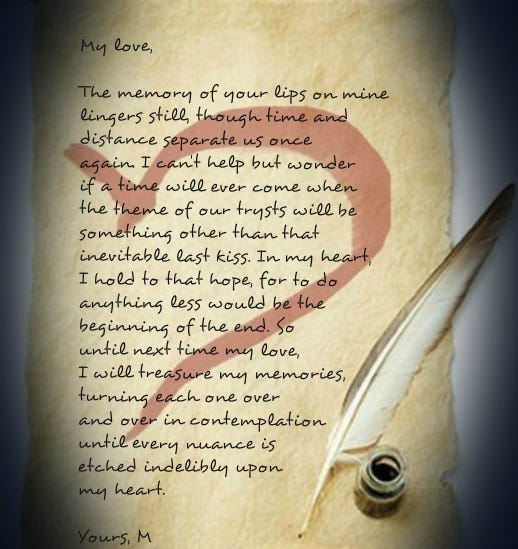 My love,
The memory of your lips on mine
lingers still, though time and
distance separate us once
again. I can't help but wonder
if a time will ever come when
the theme of our trysts will be
something other than that
inevitable last kiss. In my heart,
I hold to that hope, for to do
anything less would be the
beginning of the end. So
until next time my love,
I will treasure my memories,
turning each one over
and over in contemplation
until every nuance is
etched indelibly upon
my heart.
Yours, M